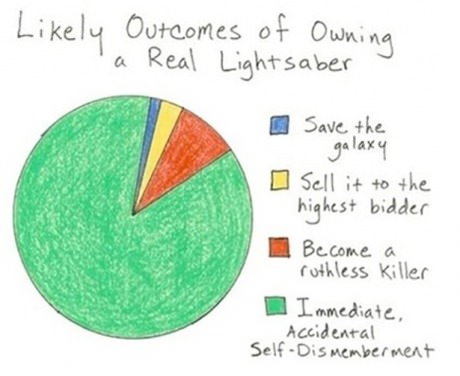 Likely Outcomes of Owning
a Real Lightsaber
Save the
galaxy
Sell it to the
highest bidder
Become a
ruthless killer
Immediate,
Accidental
Self-Dismemberment